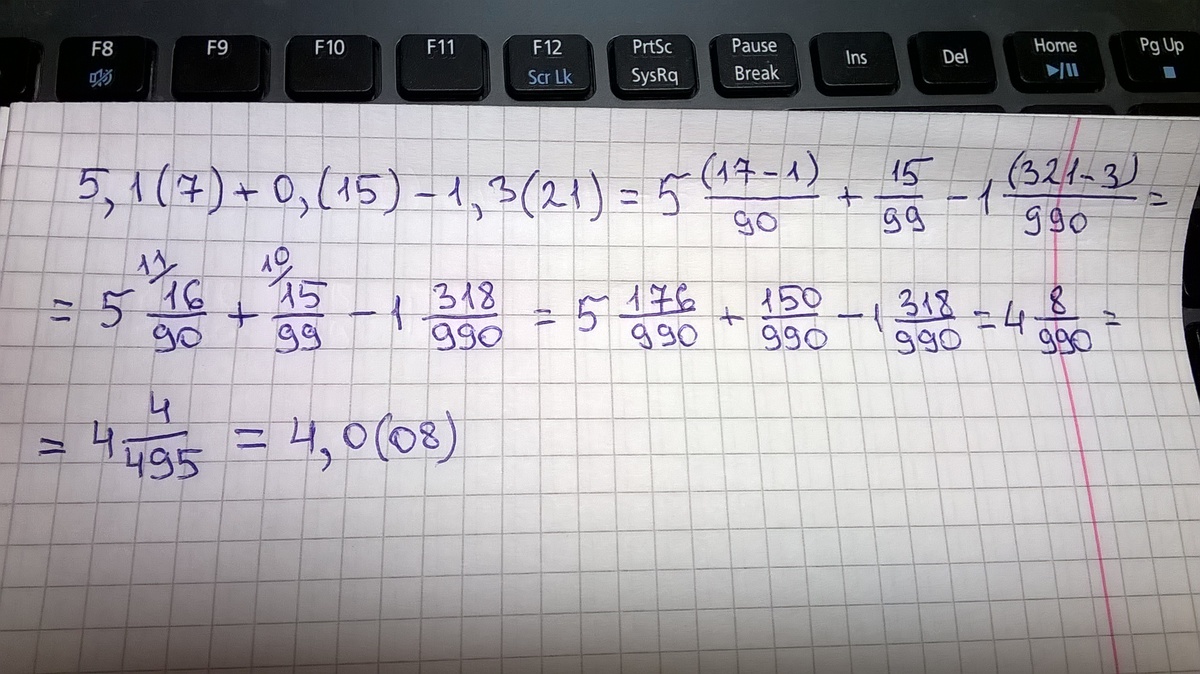 F8 F9 F10 F11 F12 PrtSc Pause Ins Del Home Pg Up
Scr Lk SysRq Break
5,1(7) + 0,(15) - 1,3(21) = 5 (17-1)/90 + 15/99 - 1 (321-3)/990 =
= 5 11/ 16/90 + 10/ 15/99 - 1 318/990 = 5 176/990 + 150/990 - 1 318/990 = 4 8/990 =
= 4 4/495 = 4,0(08)